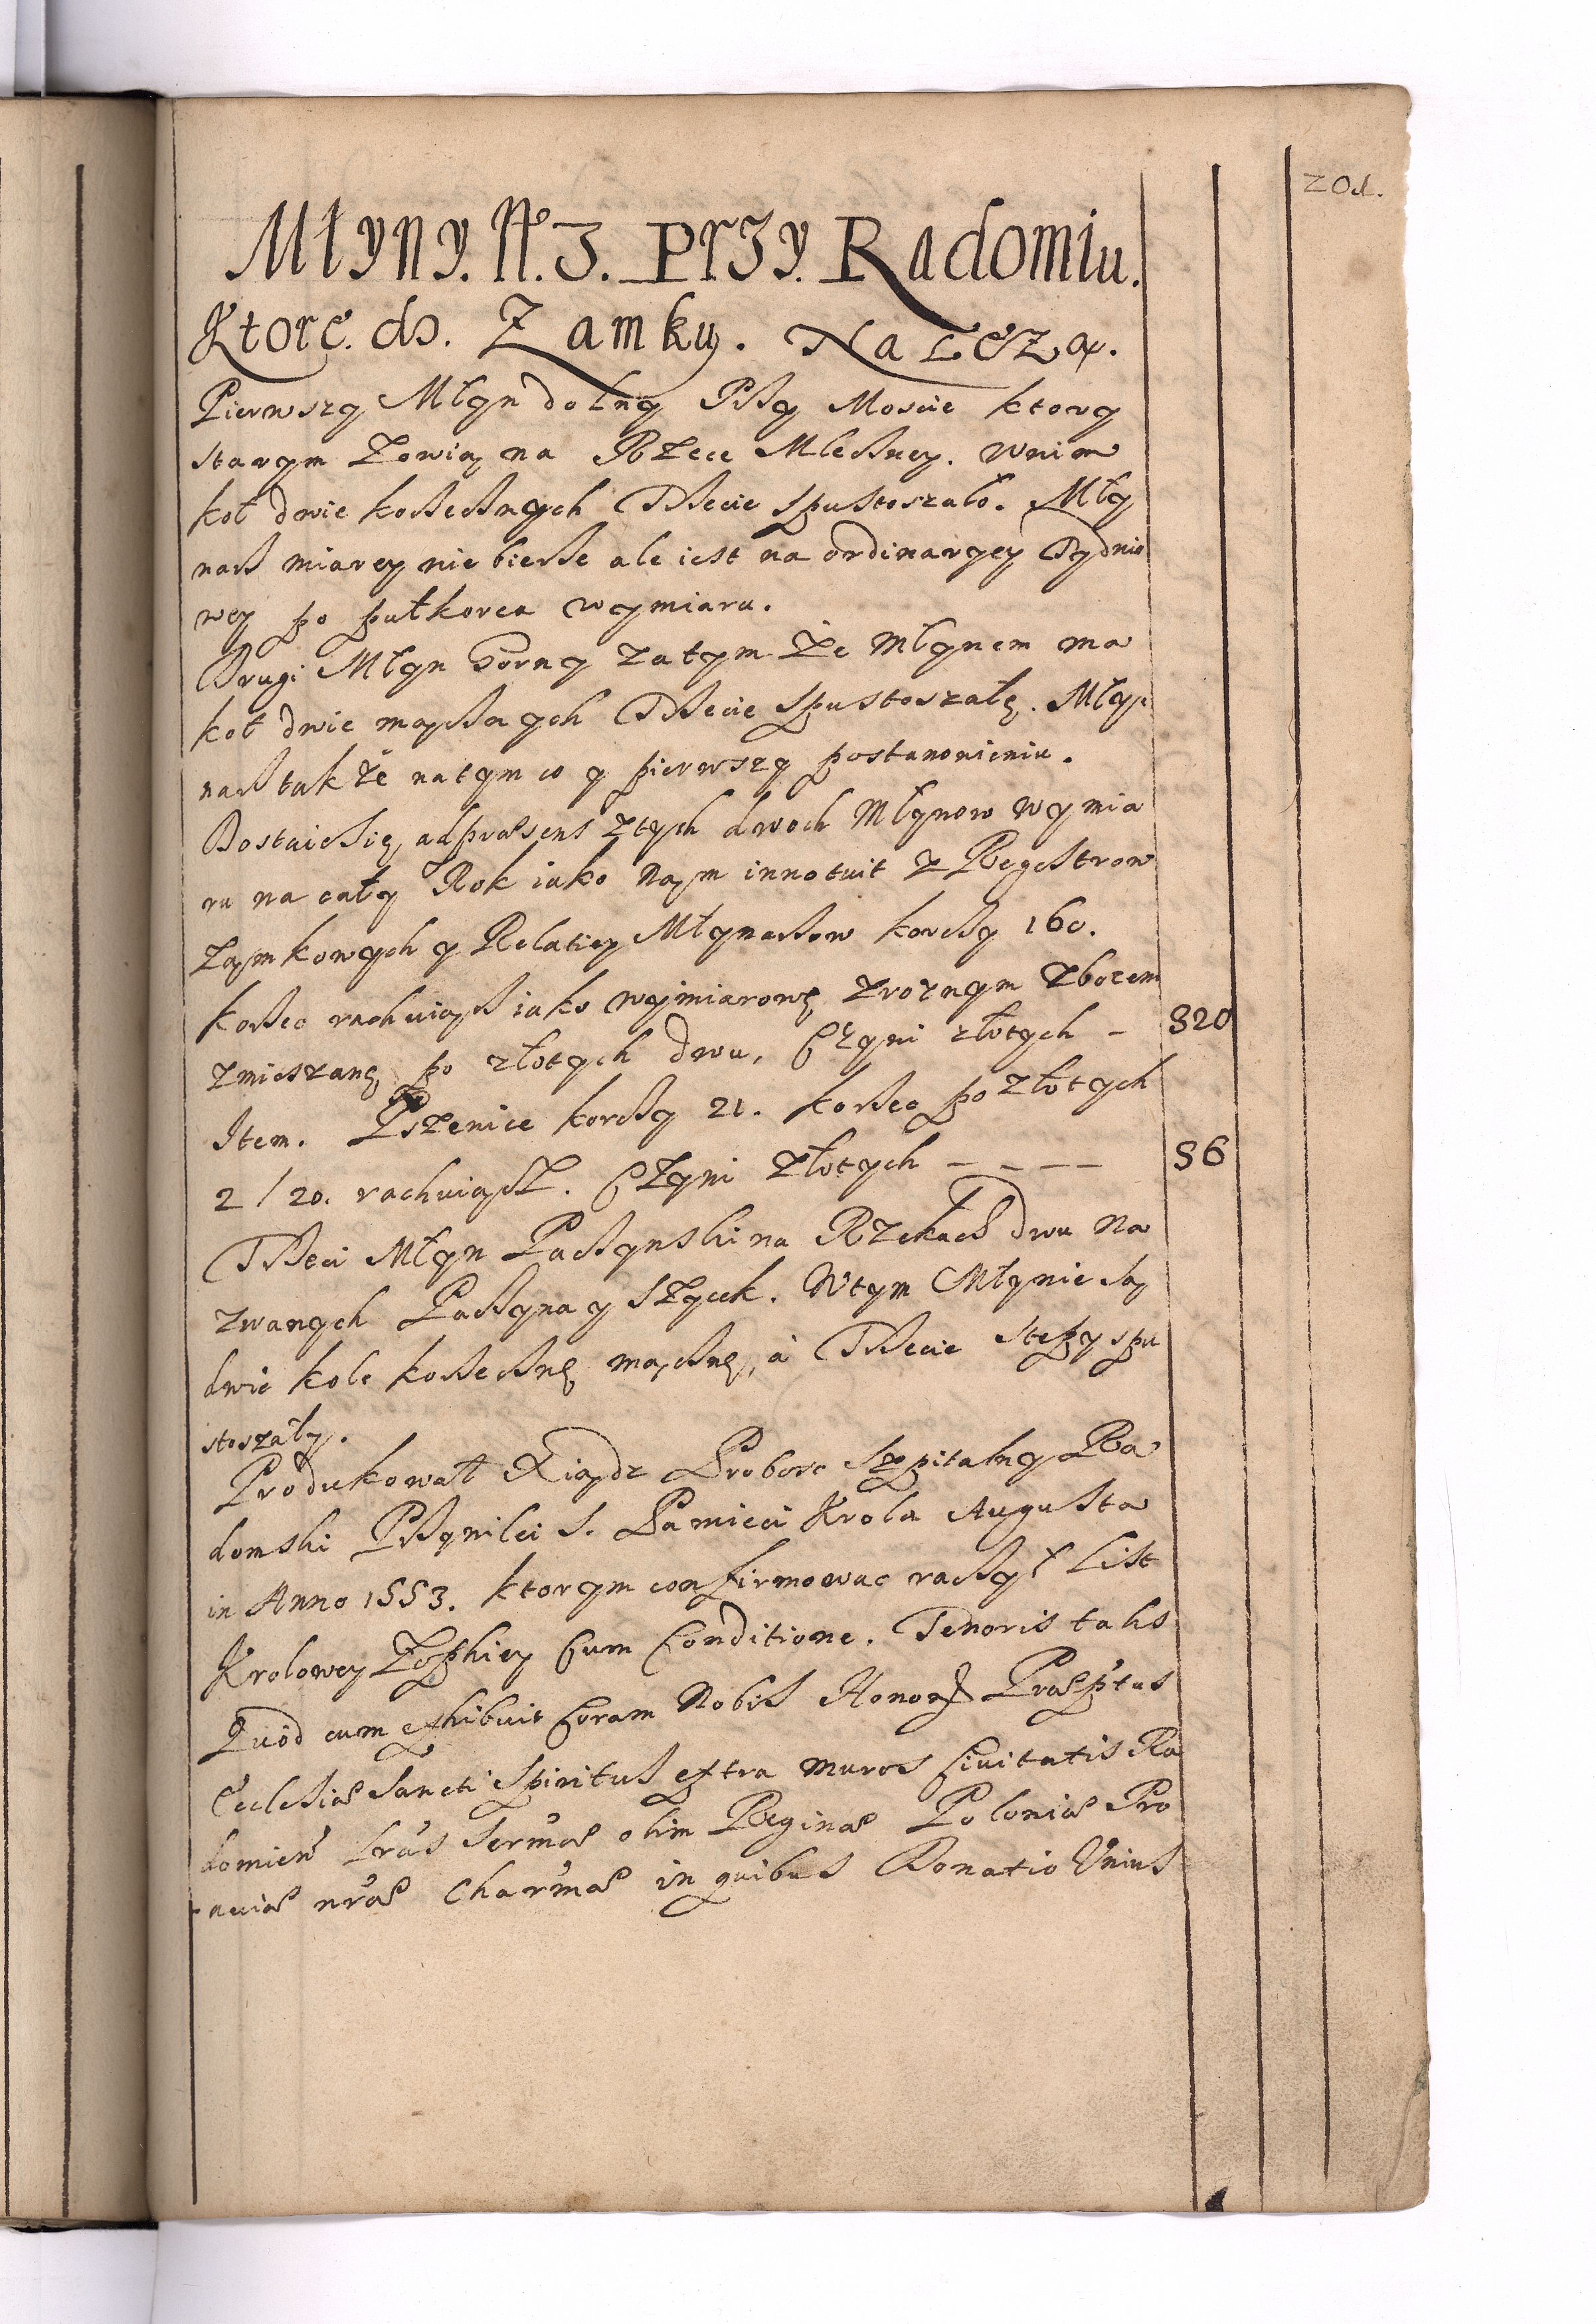 201.
Młyny. N. 3. Przy. Radomiu.
Ktore. do. Zamku. Należą.
Pierwszy Młyn dolny Przy Moscie ktory
starym zowią na Rzece Mleczney. wnim
koł dwie korzecznych Trzecie spustoszało. Mły
narz miarey nie bierze ale iest na ordinaryey Tydnio
wey po pułkorca wymiaru.
Drugi Młyn Gorny zatym że młynem ma
koł dwie mącznych Trzecie spustoszałę. Mły
narz także natym co y pierwszy postanowieniu.
Dostaie się, ad præsens ztych dwoch Młynow wymia
ru na cały Rok iako nąm innotuit z Regestrow
zamkowych y Relatiey Młynarzow korcy 160.
korzec rachuiąc iako wymiarowę, zrożnym zbożem
zmieszanę, po złotych dwu, Czyni złotych - 320
Item. Pszenice korcy 21. korzec po złotych
2/20. rachuiącz. Czyni złotych - - - - 56
Trzeci Młyn Paczynski na Rzekach dwu na
zwanych Paczyna y Szycek. Wtym Młynie są
dwie kole korzecznę mącznę, à Trzecie stępy spu
stoszały.
Produkował Xiądz Proborc Szpitalny Ra
domski Przywilei S. Pamięci Krola Augusta
in Anno 1553. ktorym confirmowac raczył List
Krolowey Zophiey Cum Conditione. Tenoris talis
Quod cum exhibuit Coram Nobis Honor Præptus
Ecclesiæ Sancti Spiritus extra muros Civitatis Ra
domien Lras Sermæ olim Reginæ Poloniæ Pro
auiæ nræ Charmæ in quibus Donatio Vnius